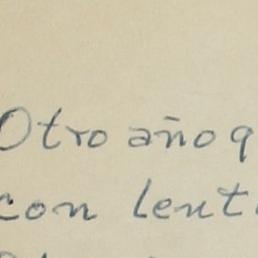 Otro año q
con lent